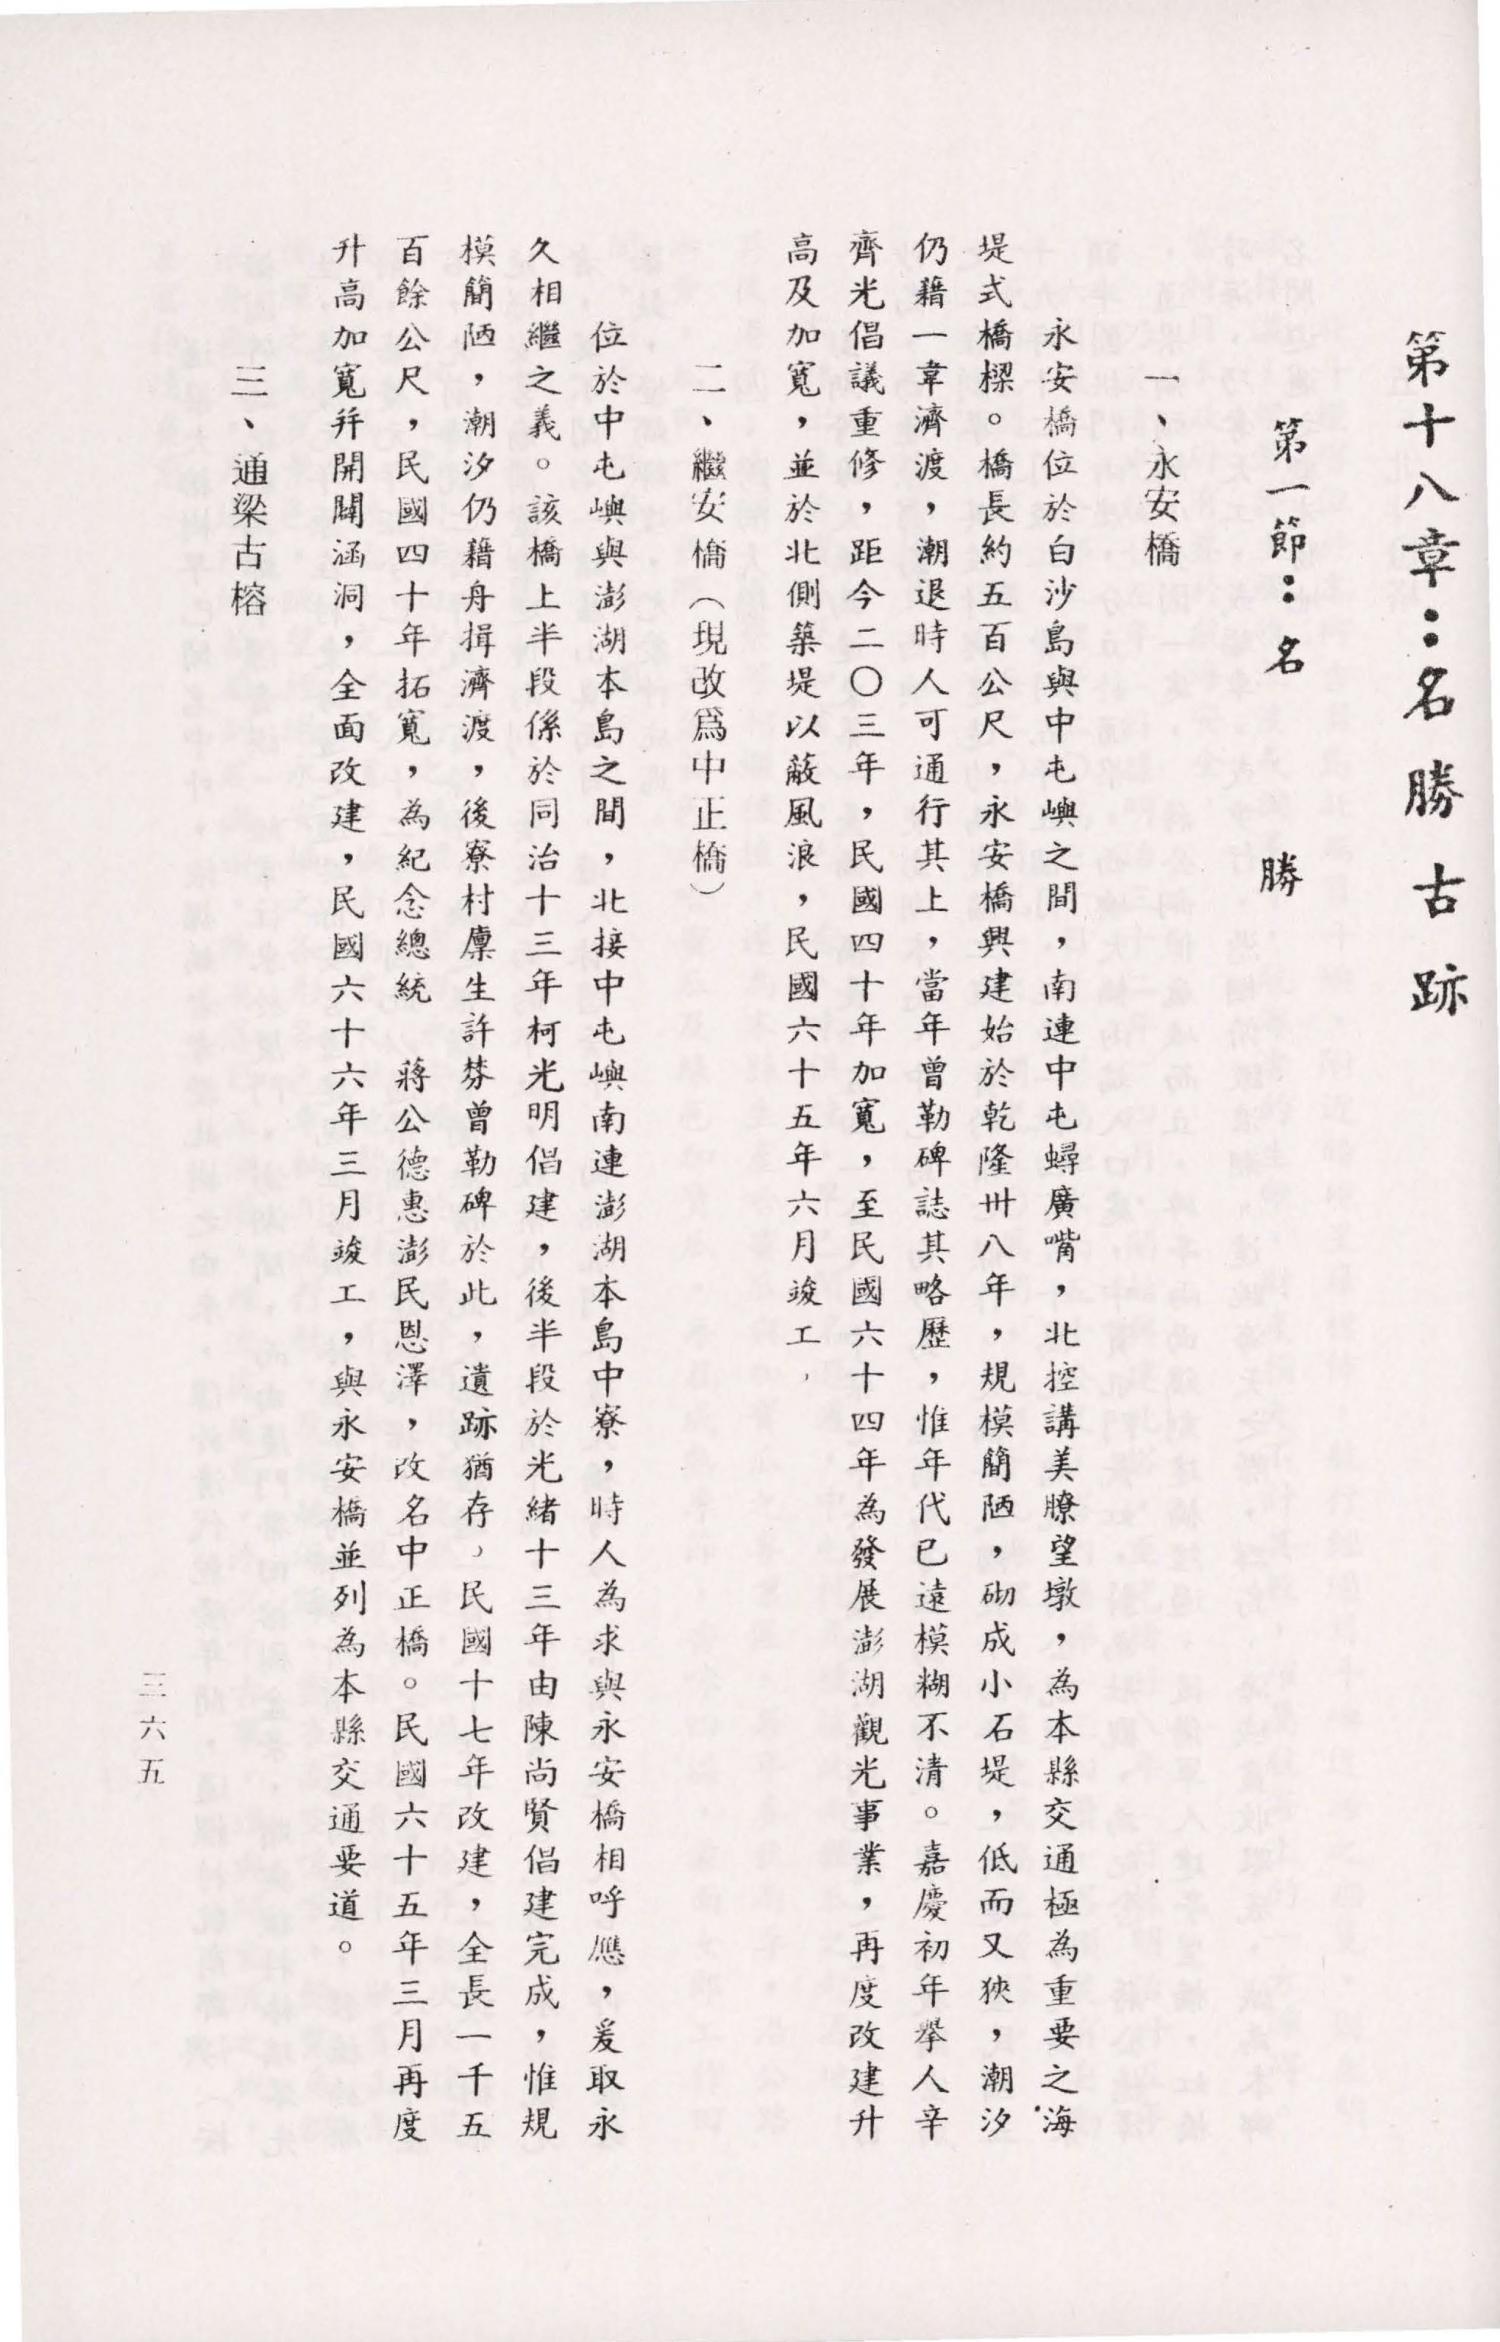 第十八章：名勝古跡
第一節：名勝
一、永安橋
永安橋位於白沙島與中屯嶼之間，南連中屯蟳廣嘴，北控講美瞭望墩，為本縣交通極為重要之海
堤式橋樑。橋長約五百公尺，永安橋興建始於乾隆卅八年，規模簡陋，砌成小石堤，低而又狹，潮汐
仍藉一葦濟渡，潮退時人可通行其上，當年曾勒碑誌其略歷，惟年代已遠模糊不清。嘉慶初年舉人辛
齊光倡議重修，距今二〇三年，民國四十年加寬，至民國六十四年為發展澎湖觀光事業，再度改建升
高及加寬，並於北側築堤以蔽風浪，民國六十五年六月竣工，
二、繼安橋（現改爲中正橋）
位於中屯嶼與澎湖本島之間，北接中屯嶼南連澎湖本島中寮，時人為求與永安橋相呼應，爰取永
久相繼之義。該橋上半段係於同治十三年柯光明倡建，後半段於光緒十三年由陳尚賢倡建完成，惟規
模簡陋，潮汐仍藉舟揖濟渡，後寮村廩生許棼曾勒碑於此，遺跡猶存，民國十七年改建，全長一千五
百餘公尺，民國四十年拓寬，為紀念總統　蔣公德惠澎民恩澤，改名中正橋。民國六十五年三月再度
升高加寬幷開闢涵洞，全面改建，民國六十六年三月竣工，與永安橋並列為本縣交通要道。
三、通梁古榕
三六五